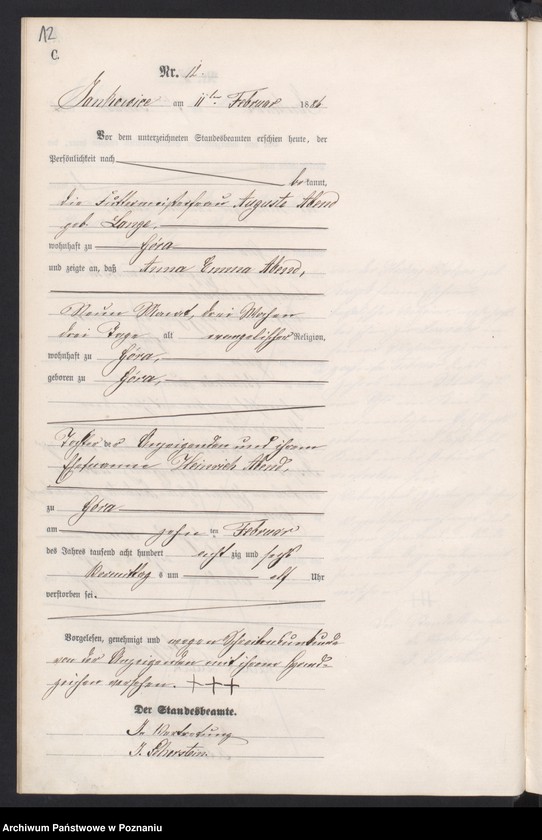 12
C.
Nr. 12.
Jankowice am 11ten Februar 1886
Vor dem unterzeichneten Standesbeamten erschien heute, der
Persönlichkeit nach
bekannt,
die Futtermeisterfrau Auguste Abend
geb. Lange.
wohnhaft zu Góra
und zeigte an, daß Anna Emma Abend,
Neun Monat, drei Wochen
drei Tage alt evangelischer Religion,
wohnhaft zu Góra,
geboren zu Góra,
Tochter der Anzeigenden und ihrem
Ehemanne Heinrich Abend,
zu Góra
am zehn ten Februar
des Jahres tausend acht hundert acht zig und sechs
Vormittag s um elf Uhr
verstorben sei.
Vorgelesen, genehmigt und wegen Schreibunkunde
von der Anzeigenden mit ihrem Hand-
zeichen versehen. +++
Der Standesbeamte.
In Vertretung
Archiwum Państwowe w Poznaniu